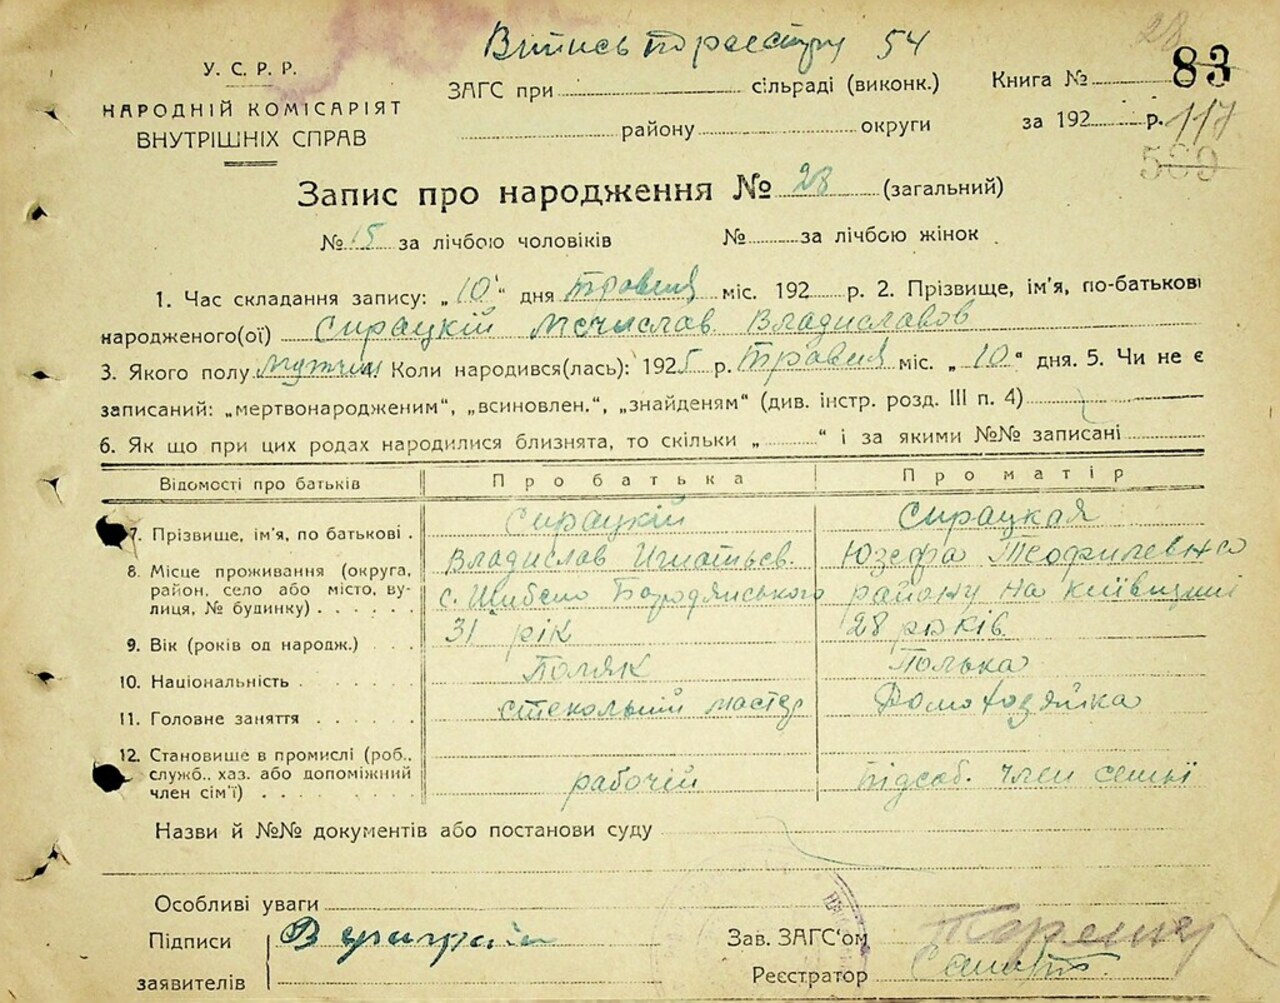 Випись по реєстру 54
28
У. С. Р. Р.
НАРОДНІЙ КОМІСАРІЯТ
ВНУТРІШНІХ СПРАВ
ЗАГС при сільраді (виконк.)
району округи
Книга № 83
за 192 р. 117
569
Запис про народження № 28 (загальний)
№ 15 за лічбою чоловіків № за лічбою жінок
1. Час складання запису: „10“ дня Травня міс. 192 р. 2. Прізвище, ім'я, по-батькові
народженого(ої) Сирацкій Мечислав Владиславов
3. Якого полу мужчин Коли народився(лась): 1925 р. Травня міс. „10“ дня. 5. Чи не є
записаний: „мертвонародженим“, „всиновлен.“, „знайденям“ (див. інстр. розд. III п. 4)
6. Як що при цих родах народилися близнята, то скільки „ “ і за якими №№ записані
Відомості про батьків Про батька Про матір
7. Прізвище, ім'я, по батькові . Сирацкій Сирацкая
Владислав Игнатьев. Юзефа Теофилевна
8. Місце проживання (округа, район, село або місто, вулиця, № будинку) . . . . . . с. Шибено Бородянського району на Київщині
9. Вік (років од народж.) . . . 31 рік 28 років
10. Національність . . . . . . Поляк Полька
11. Головне заняття . . . . . стекольний мастер Домохозяйка
12. Становище в промислі (роб., служб., хаз. або допоміжний член сім'ї) . . . . . . . . рабочій підсоб. член семиї
Назви й №№ документів або постанови суду
Особливі уваги
Підписи
заявителів
Зав. ЗАГС'ом
Реєстратор